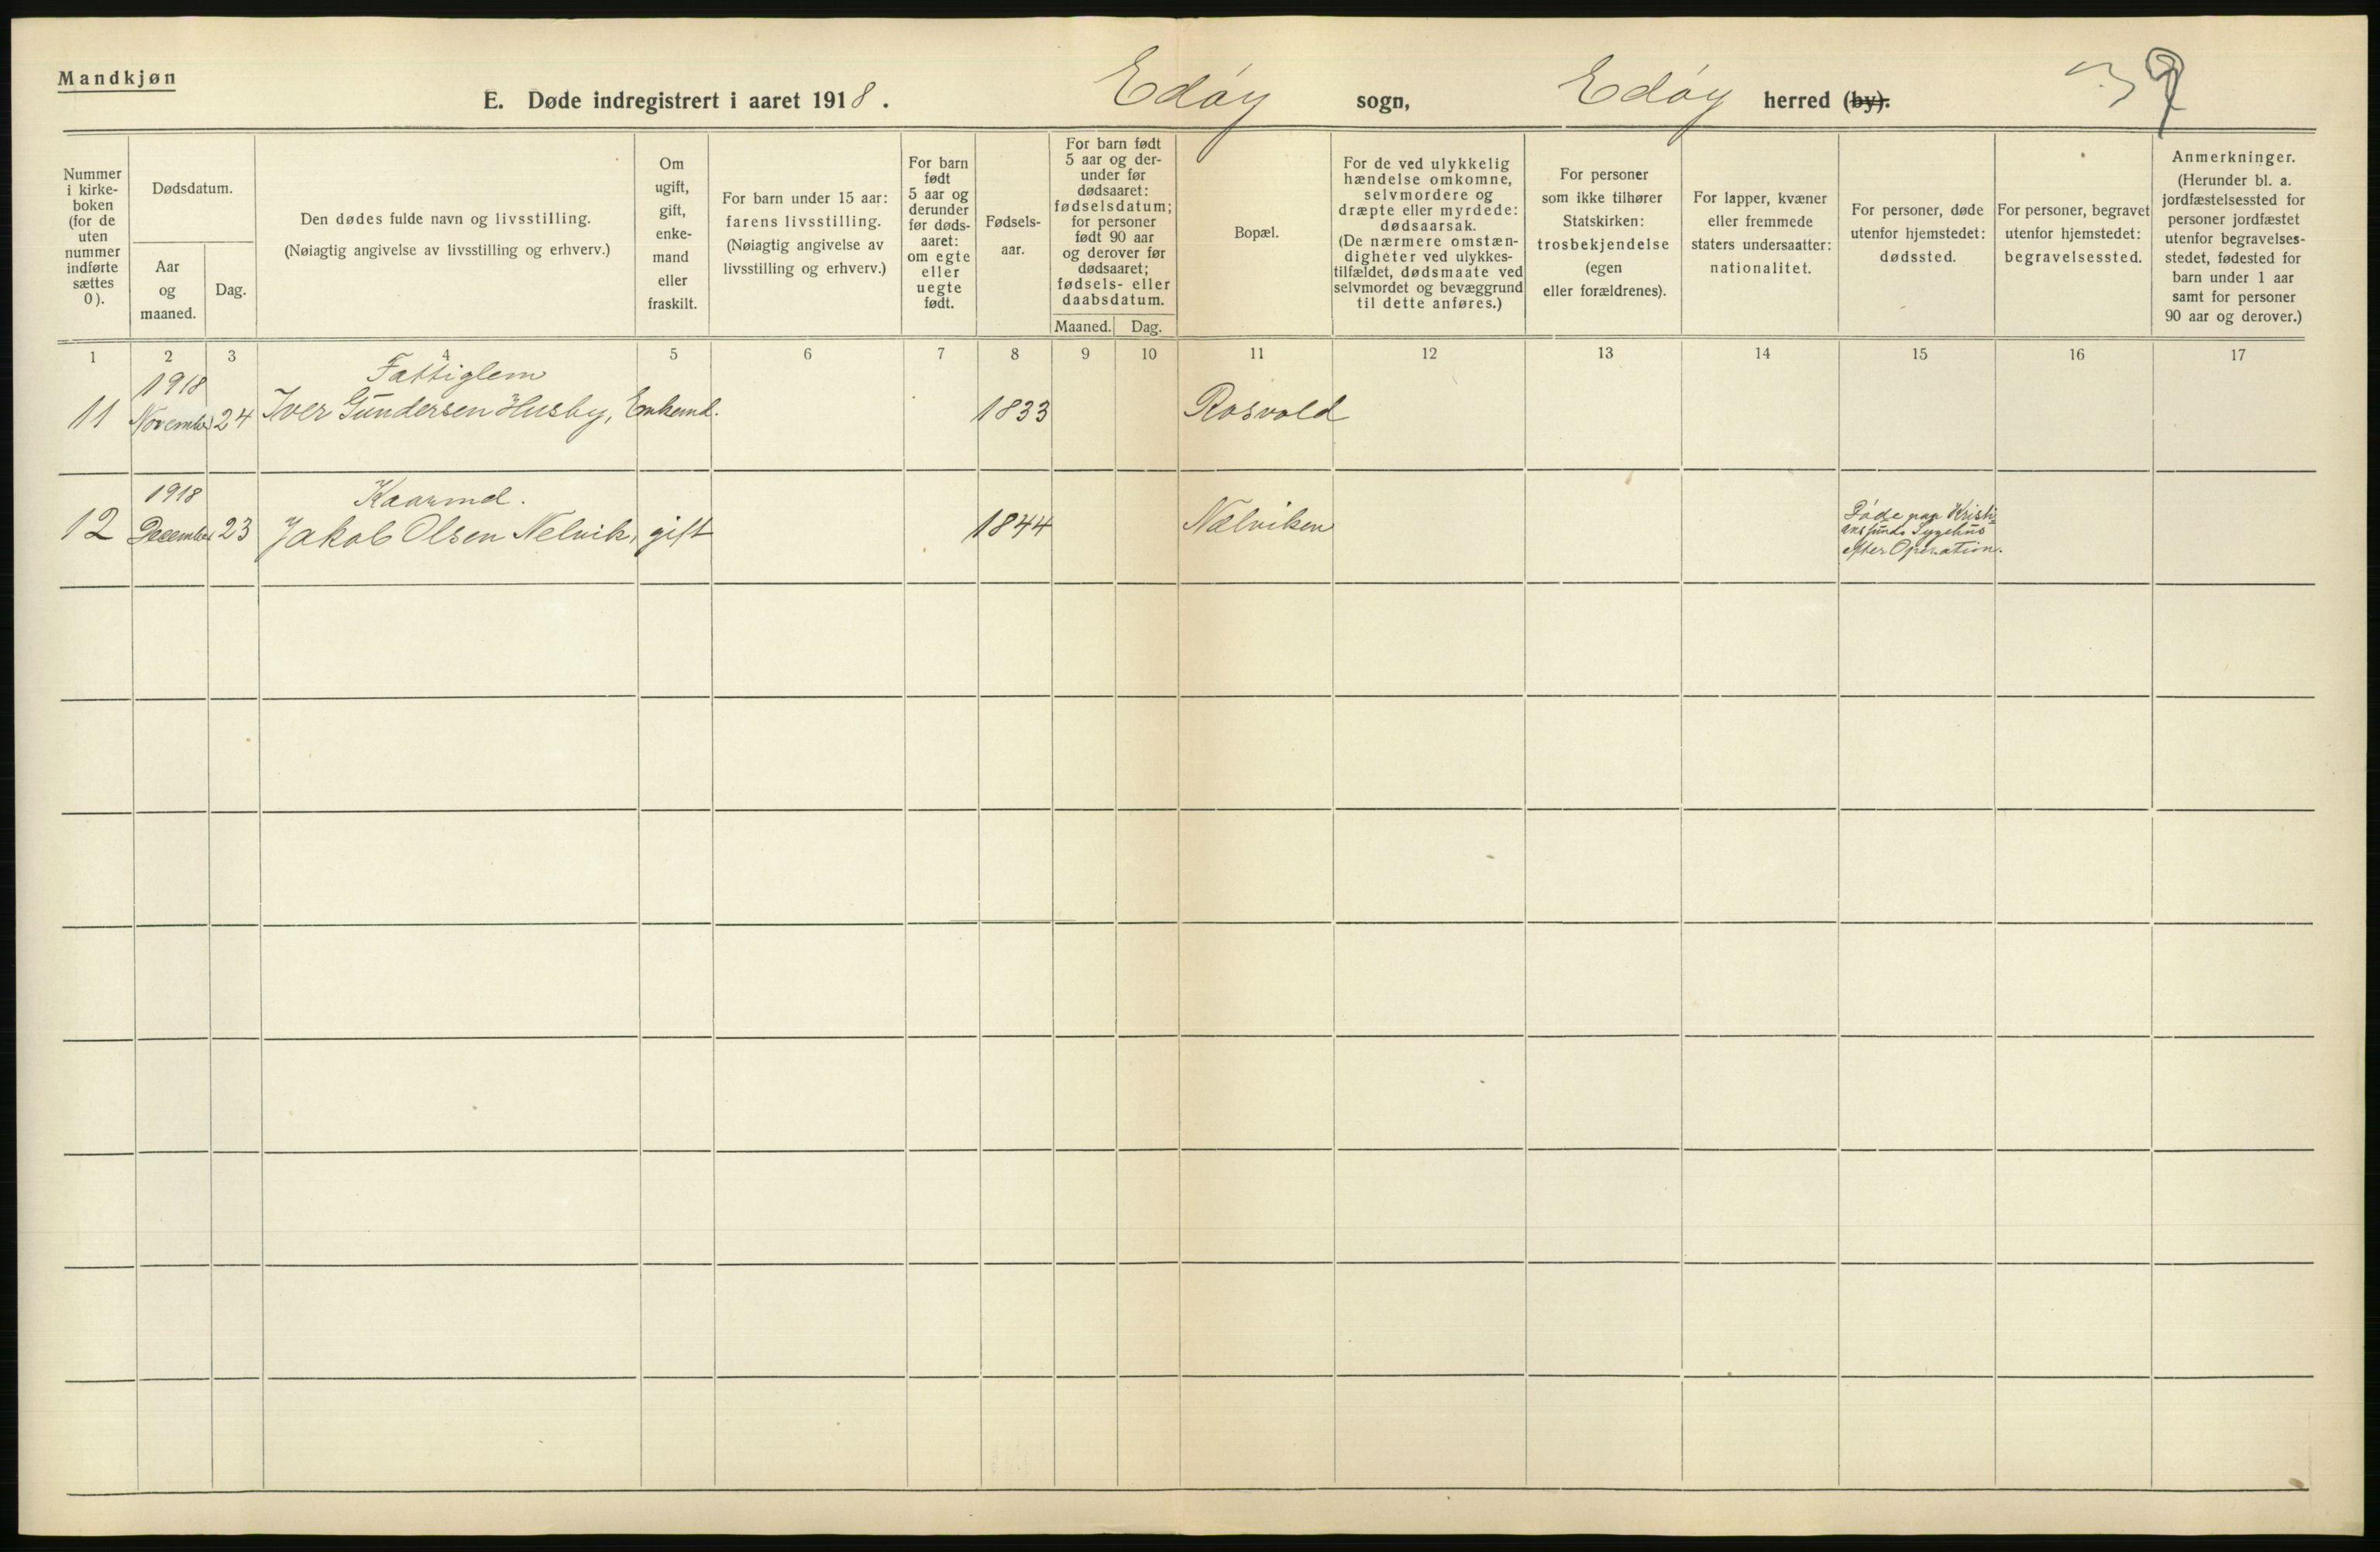 Mandkjøn
E. Døde indregistrert i aaret 1918. Edøy sogn, Edøy herred (by). 39
Nummer
i kirke-
boken
(for de
uten
nummer
indførte
sættes
0).
Dødsdatum.
Aar
og
maaned.
Dag.
Den dødes fulde navn og livsstilling.
(Nøiagtig angivelse av livsstilling og erhverv.)
Om
ugift,
gift,
enke-
mand
eller
fraskilt.
For barn under 15 aar:
farens livsstilling.
(Nøiagtig angivelse av
livsstilling og erhverv.)
For barn
født
5 aar og
derunder
før døds-
aaret:
om egte
eller
uegte
født.
Fødsels-
aar.
For barn født
5 aar og der-
under før
dødsaaret:
fødselsdatum;
for personer
født 90 aar
og derover før
dødsaaret;
fødsels- eller
daabsdatum.
Maaned. Dag.
Bopæl.
For de ved ulykkelig
hændelse omkomne,
selvmordere og
dræpte eller myrdede:
dødsaarsak.
(De nærmere omstæn-
digheter ved ulykkes-
tilfældet, dødsmaate ved
selvmordet og bevæggrund
til dette anføres.)
For personer
som ikke tilhører
Statskirken:
trosbekjendelse
(egen
eller forældrenes).
For lapper, kvæner
eller fremmede
staters undersaatter:
nationalitet.
For personer, døde
utenfor hjemstedet:
dødssted.
For personer, begravet
utenfor hjemstedet:
begravelsessted.
Anmerkninger.
(Herunder bl. a.
jordfæstelsessted for
personer jordfæstet
utenfor begravelses-
stedet, fødested for
barn under 1 aar
samt for personer
90 aar og derover.)
1 2 3 4 5 6 7 8 9 10 11 12 13 14 15 16 17
1918 Fattiglem
11 November 24 Iver Gundersen Husby, Enkemd. 1833 Rosvold
1918 Kaarmd.
12 December 23 Jakob Olsen Nelvik, gift 1844 Nelviken
Døde paa Kristi-
ansunds Sygehus
efter Operation.